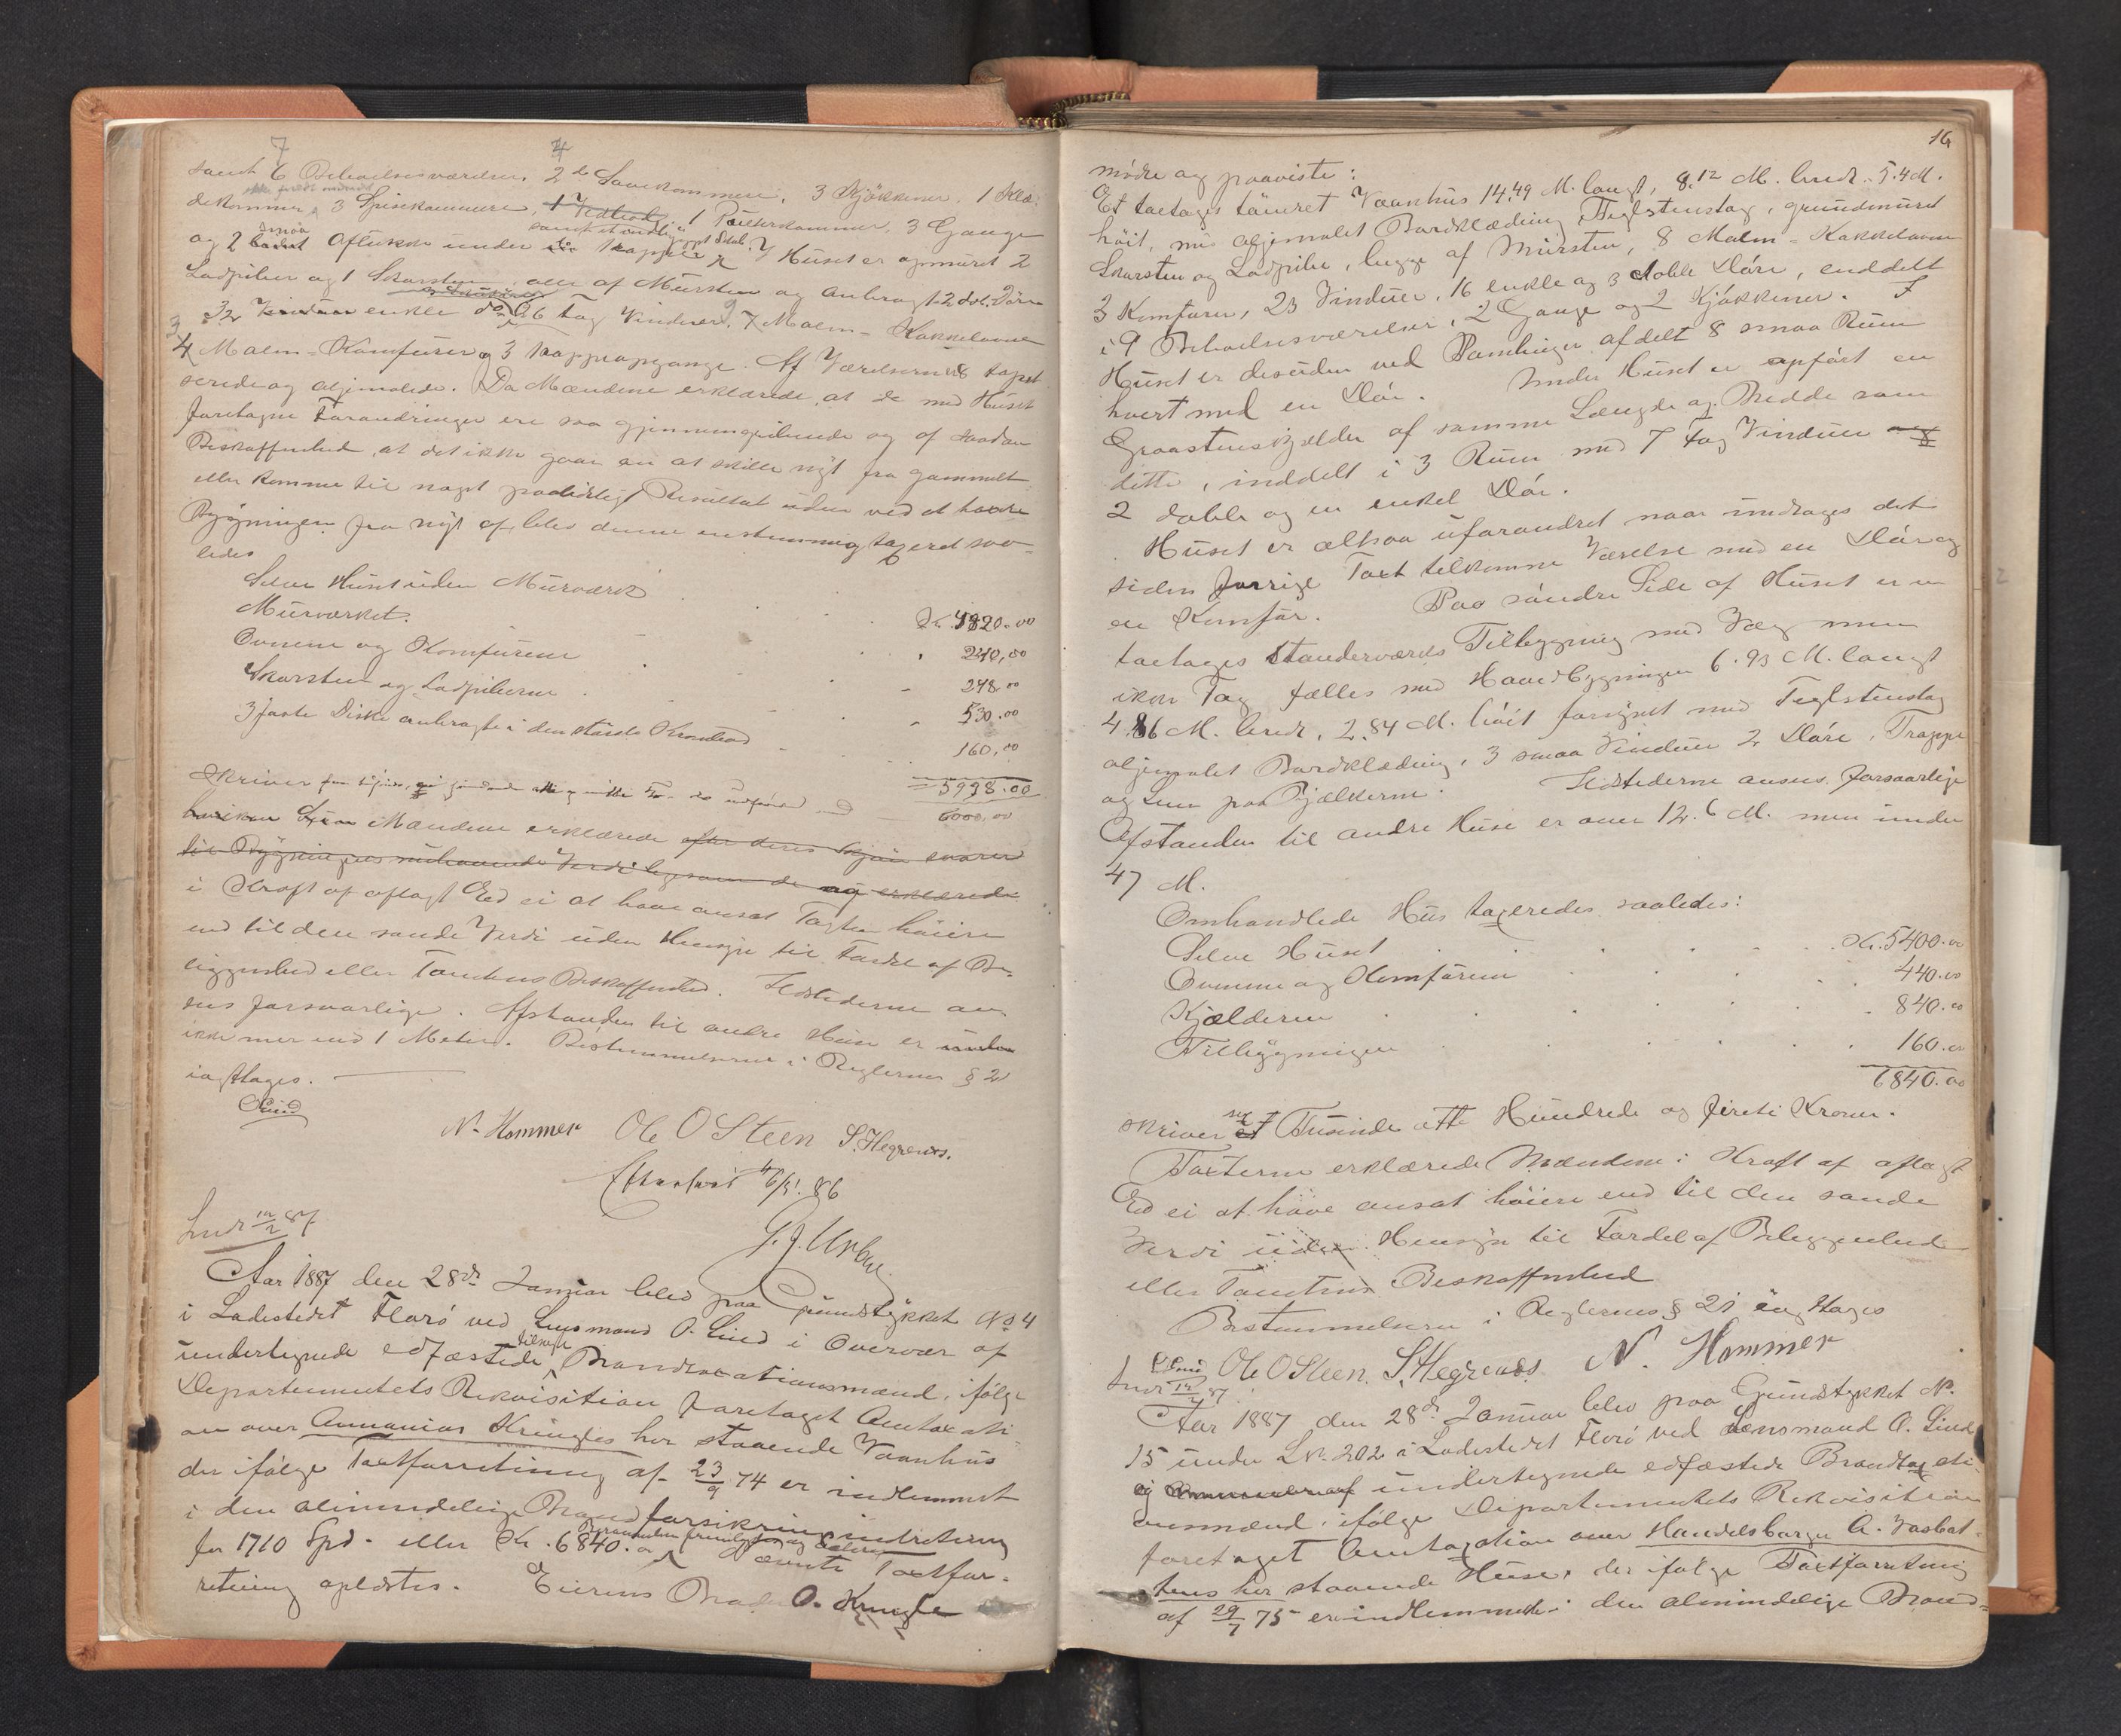 7 4
samt 6 Beboelsesværelser, 2de Sovekammere, 3 Kjøkkener, 1 Klæ-
dekammer, 3 Spisekammere, 1 Pulterkammer, 3 Gange
og 2 smaa Aflukke under Huset er opmuret 2
Ladpiber og 1 Skorsten, alle af Mursten og anbragt 2 dob. Døre
32 enkle do 26 Fag Vinduer, 7 Malm-Kakkelovne
4 Malm-Komfurer og 3 Trappeopgange. Af Værelserne er 8 tapet
serede og oljemalede. Da Mændene erklærede, at de med Huset
foretagne Forandringer ere saa gjennemgribende og af saadan
Beskaffenhed, at det ikke gaar an at skille nyt fra gammelt
eller komme til noget paalideligt Resultat uden ved at taxere
Bygningen fra nyt af, blev denne enstemmig taxeret saa-
ledes
Selve Huset uden Murværk Kr. 4820.00
Murværket. 240,00
Ovnene og Komfurerne 248.00
Skorsten og Ladpiberne 530.00
3 faste Diske anbragte i den største Krambod 160,00
= 5998.00
Skriver 6000,00
Mændene erklærede efter deres Skjøn svarer
til Bygningens nuhavende Verdi ligesom de og erklærede
i Kraft af aflagt Ed ei at have ansat Taxten høiere
end til den sande Verdi uden Hensyn til Fordel af Be-
liggenhed eller Tomtens Beskaffenhed. Ildstederne an-
sees forsvarlige. Afstanden til andre Huse er
ikke mer end 1 Meter. Bestemmelserne i Reglernes § 21
iagttages.
Lind
N. Hammer Ole O Steen S. Hegrenæs.
Efterseet 86
Indr 12/2 87
Aar 1887 den 28de Januar blev paa Grundstykket No 4
i Ladestedet Florø ved Lensmand O. Lind i Overvær af
undertegnede edfæstede tilsagte Brandtaxationsmænd, ifølge
Departementets Rekvisition foretaget Omtaxati-
on over Annanias Kringles her staaende Vaanhus
der ifølge Taxtforretning af 23/9 74 er indlemmet
i den almindelige Brandforsikringsindretning
for 1710 Spd. eller Kr. 6840.00 nævnte Taxtfor-
retning oplæstes. Eierens Broder O. Kringle
16
mødte og paaviste:
Et toetages tømret Vaanhus 14.49 M. langt, 8.12 M. bredt 5.4 M.
høit, med oljemalet Bordklædning Teglstenstag, grundmuret
Skorsten og Ladpibe, begge af Mursten, 8 Malm-Kakkelovne
3 Komfurer, 23 Vinduer, 16 enkle og 3 doble Døre, inddelt
i 9 Beboelsesværelser, 2 Gange og 2 Kjøkkener. I
Huset er desuden ved Pamlinger afdelt 8 smaa Rum
hvert med en Dør. Under Huset er opført en
Graastenskjælder af samme Længde og Bredde som
dette, inddelt i 3 Rum med 7 Fag Vinduer
2 doble og en enkel Dør.
Huset er altsaa uforandret naar undtages det
siden forrige Taxt tilkomne Værelse med en Dør og
en Komfur. Paa søndre Side af Huset er en
toetages Standerværks Tilbygning med Væg men
ikke Tag fælles med Hovedbygningen 6.93 M. langt
4.86 M. bredt, 2.84 M. høit forsynet med Teglstenstag
oljemalet Bordklædning, 3 smaa Vinduer 2 Døre, Trappe
og Lem paa Bjælkerne. Ildstederne ansees forsvarlige
Afstanden til andre Huse er over 12.6 M. men under
47 M.
Omhandlede Hus taxeredes saaledes:
Selve Huset Kr. 5400.00
Ovnene og Komfurerne 440.00
Kjælderen 840.00
Tilbygningen 160.00
6840.00
skriver sex Tusinde otte Hundrede og fireti Kroner.
Taxterne erklærede Mændene i Kraft af aflagt
Ed ei at have ansat høiere end til den sande
Verdi uden Hensyn til Fordel af Beliggenhed
eller Tomtens Beskaffenhed
Bestemmelserne i Reglernes § 21 iagttages
Lind Ole O Steen. S. Hegrenæs. N. Hammer
Indr 12/2 87
Aar 1887 den 28de Januar blev paa Grundstykket No.
15 under LN. 202 i Ladestedet Florø ved Lensmand O. Lind
og undertegnede edfæstede Brandtaxati-
onsmænd, ifølge Departementets Rekvisition
foretaget Omtaxation over Handelsborger A.
tens her staaende Huse, der ifølge Taxtforretning
af 29/7 75 er indlemmede i den almindelige Brand-